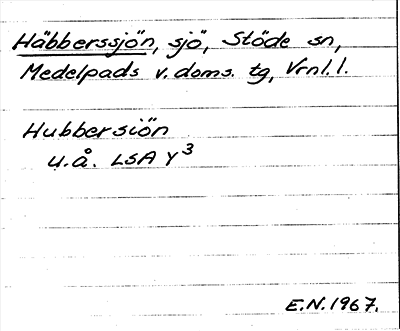 Häbberssjön, sjö, Stöde sn,
Medelpads v. doms. tg, Vrnl. l.
Hubbersiön
u.å. LSA Y3
E.N. 1967.